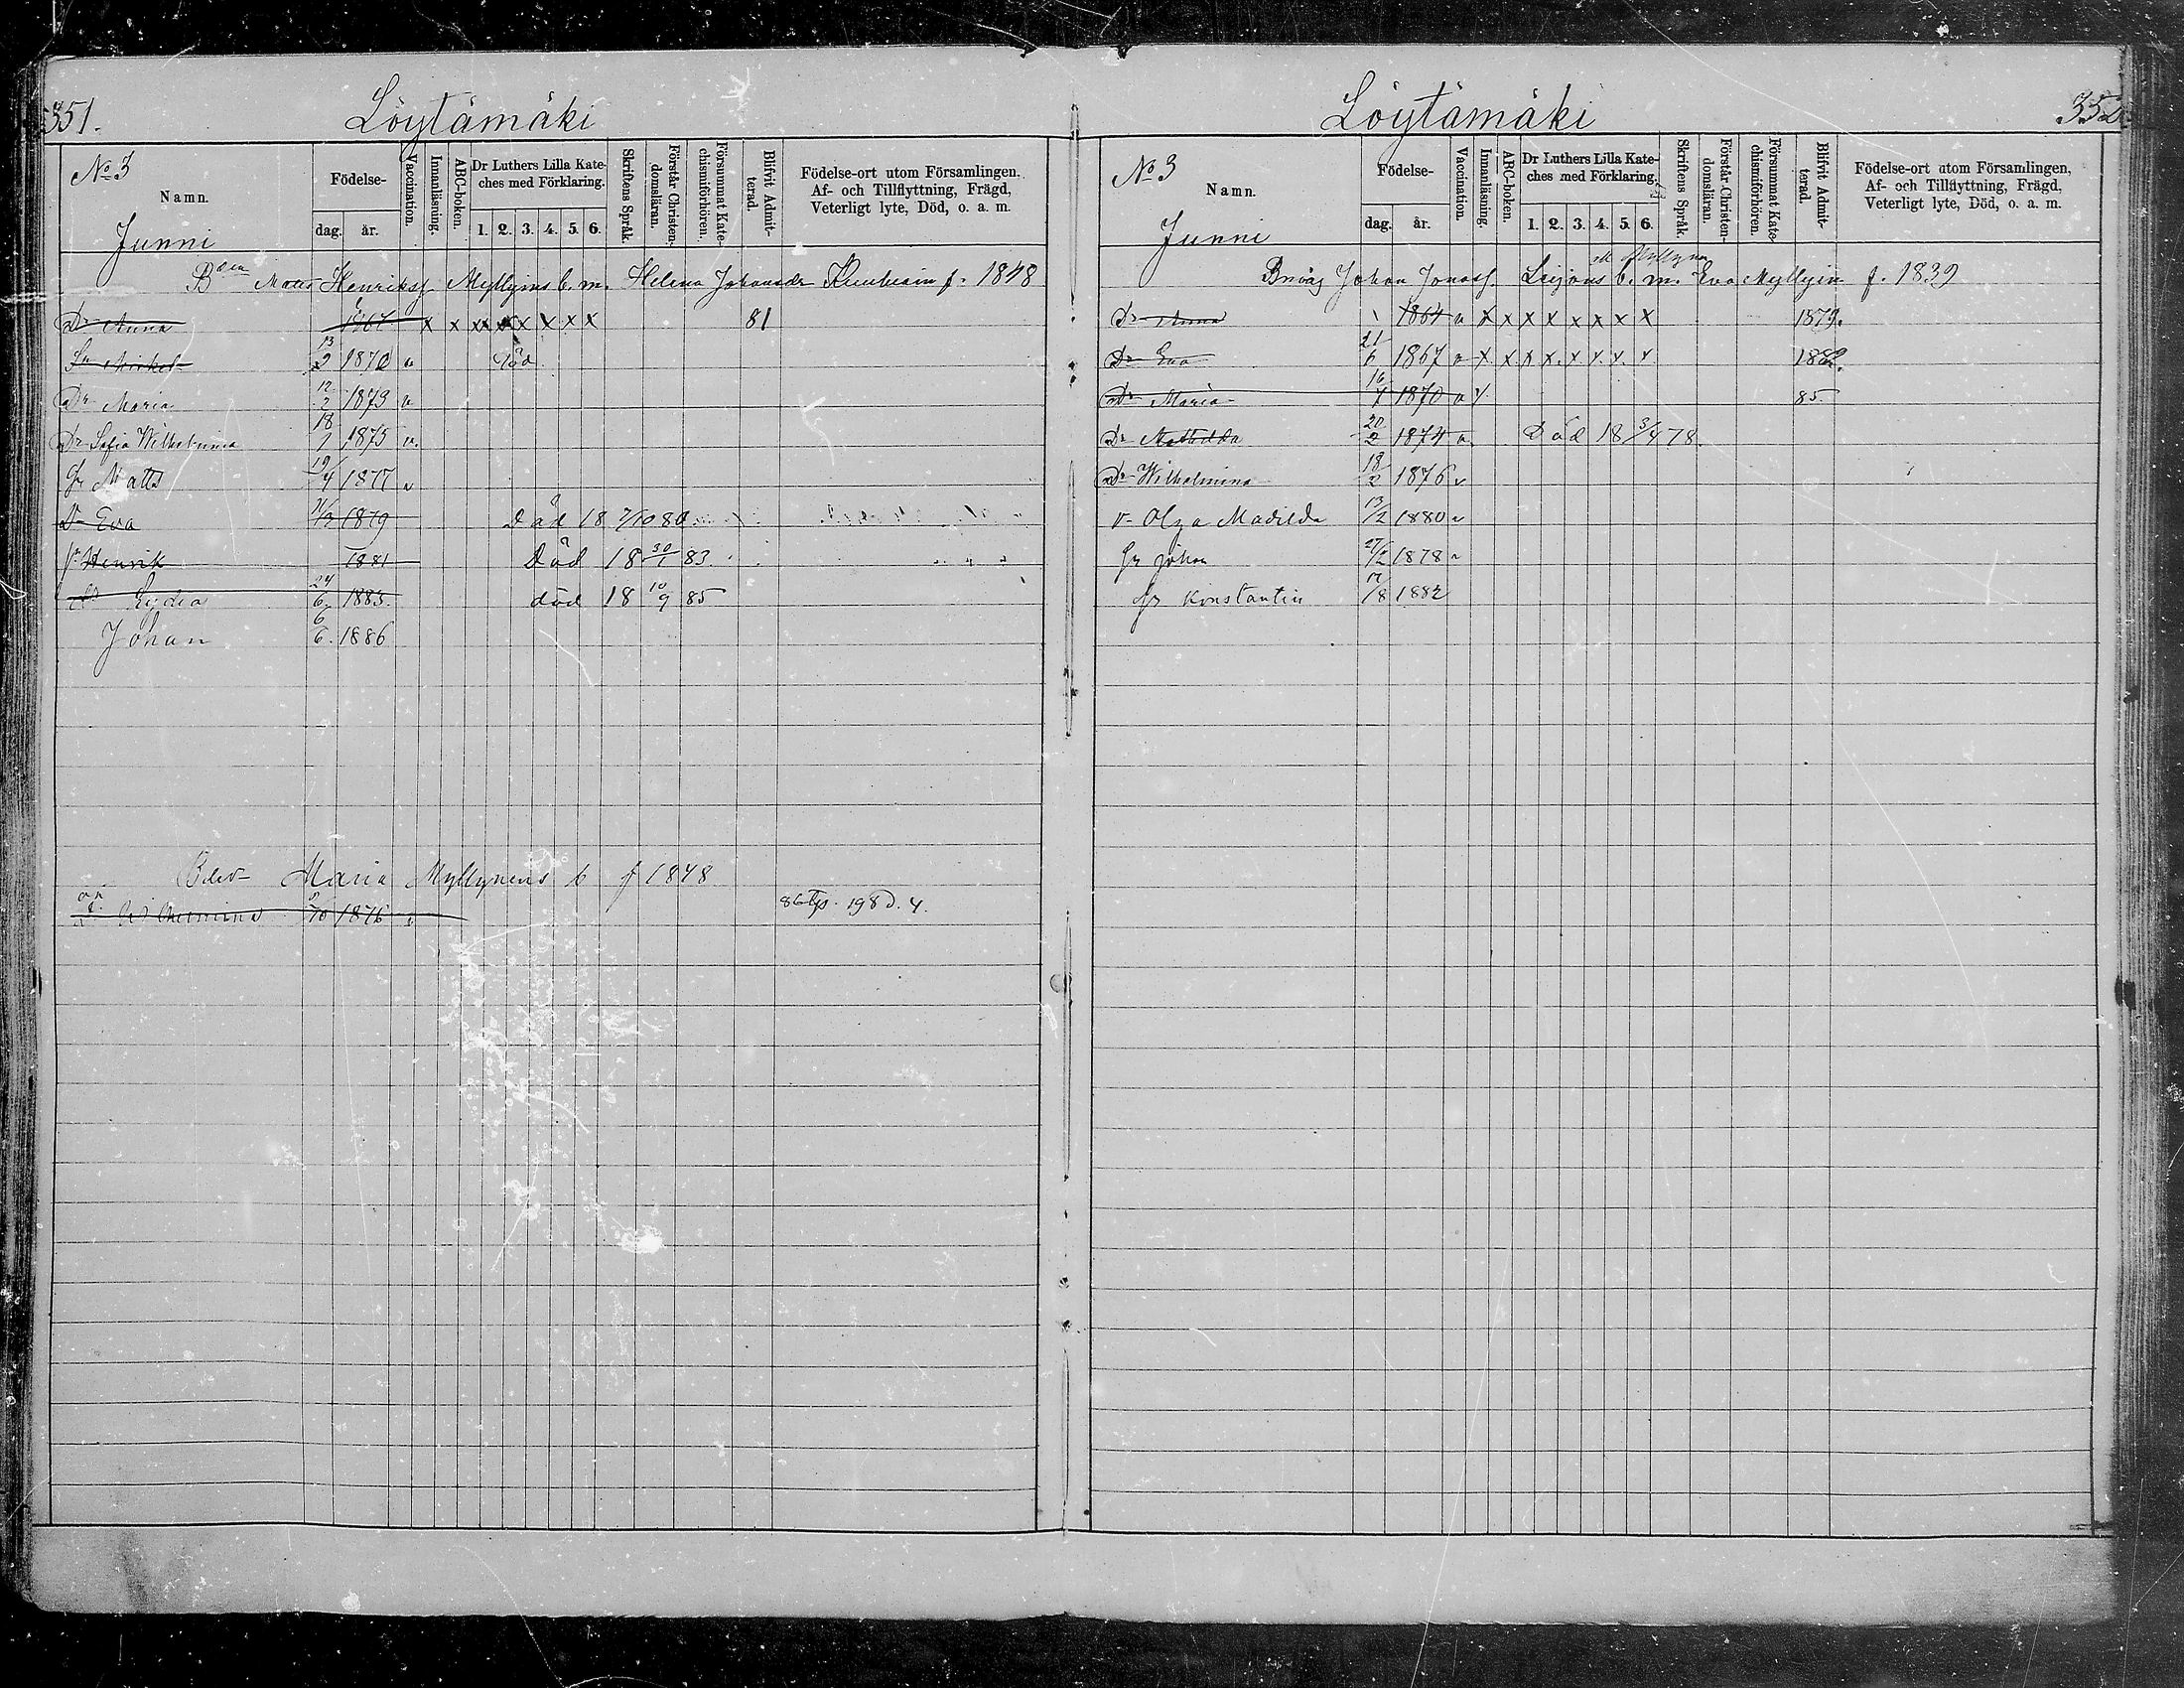 351.
Löytämäki
No 3
Namn.
Junni
Födelse-
dag. år.
Vaccination.
Innanläsning.
ABC-boken.
Dr Luthers Lilla Kate-
ches med Förklaring.
1. 2. 3. 4. 5. 6.
Skriftens Språk.
Förstår Christen-
domsläran.
Försummat Kate-
chismiförhören.
Blifvit Admit-
terad.
Födelse-ort utom Församlingen.
Af- och Tillflyttning, Frägd,
Veterligt lyte, Död, o. a. m.
Matts Henrikss Myllyins b. m. Helena Johansdr f. 1848
Dr Anna 1867 x x x x x x x x 81
Sn Mickel 13/2 1870 v Död
Dr Maria 12/2 1873 v
Dr Sofia Wilhelmina 18/1 1875 v.
Sn Matts 19/4 1877 v
Dr Eva 1879 Död 18 7/10 80
Henrik 1881 Död 18 30/1 83
Lydia 24/6 1883. död 18 10/9 85
Johan 6/6. 1886
Maria Myllynens b f 1848
Wilhelmina 5/10 1876 v
198 D. 4.
Löytämäki
352
No 3
Namn.
Junni
Födelse-
dag. år.
Vaccination.
Innanläsning.
ABC-boken.
Dr Luthers Lilla Kate-
ches med Förklaring.
1. 2. 3. 4. 5. 6.
Skriftens Språk.
Förstår Christen-
domsläran.
Försummat Kate-
chismiförhören.
Blifvit Admit-
terad.
Födelse-ort utom Församlingen,
Af- och Tillflyttning, Frägd,
Veterligt lyte, Död, o. a. m.
Johan Jonass. b. m. Eva Myllyin f. 1839
Dr Anna 1864 v x x x x x x x x 1879.
Dr Eva 21/6 1867 v x x x x. x x. x. x 1882.
Dr Maria 16/4 1870 v x 85
Dr Mathilda 20/2 1874 v Död 18 3/4 78
Dr Wilhelmina 18/2 1876 v
Olga Madilda 13/2 1880 v
Johan 27/2 1878 v
Konstantin 17/8 1882